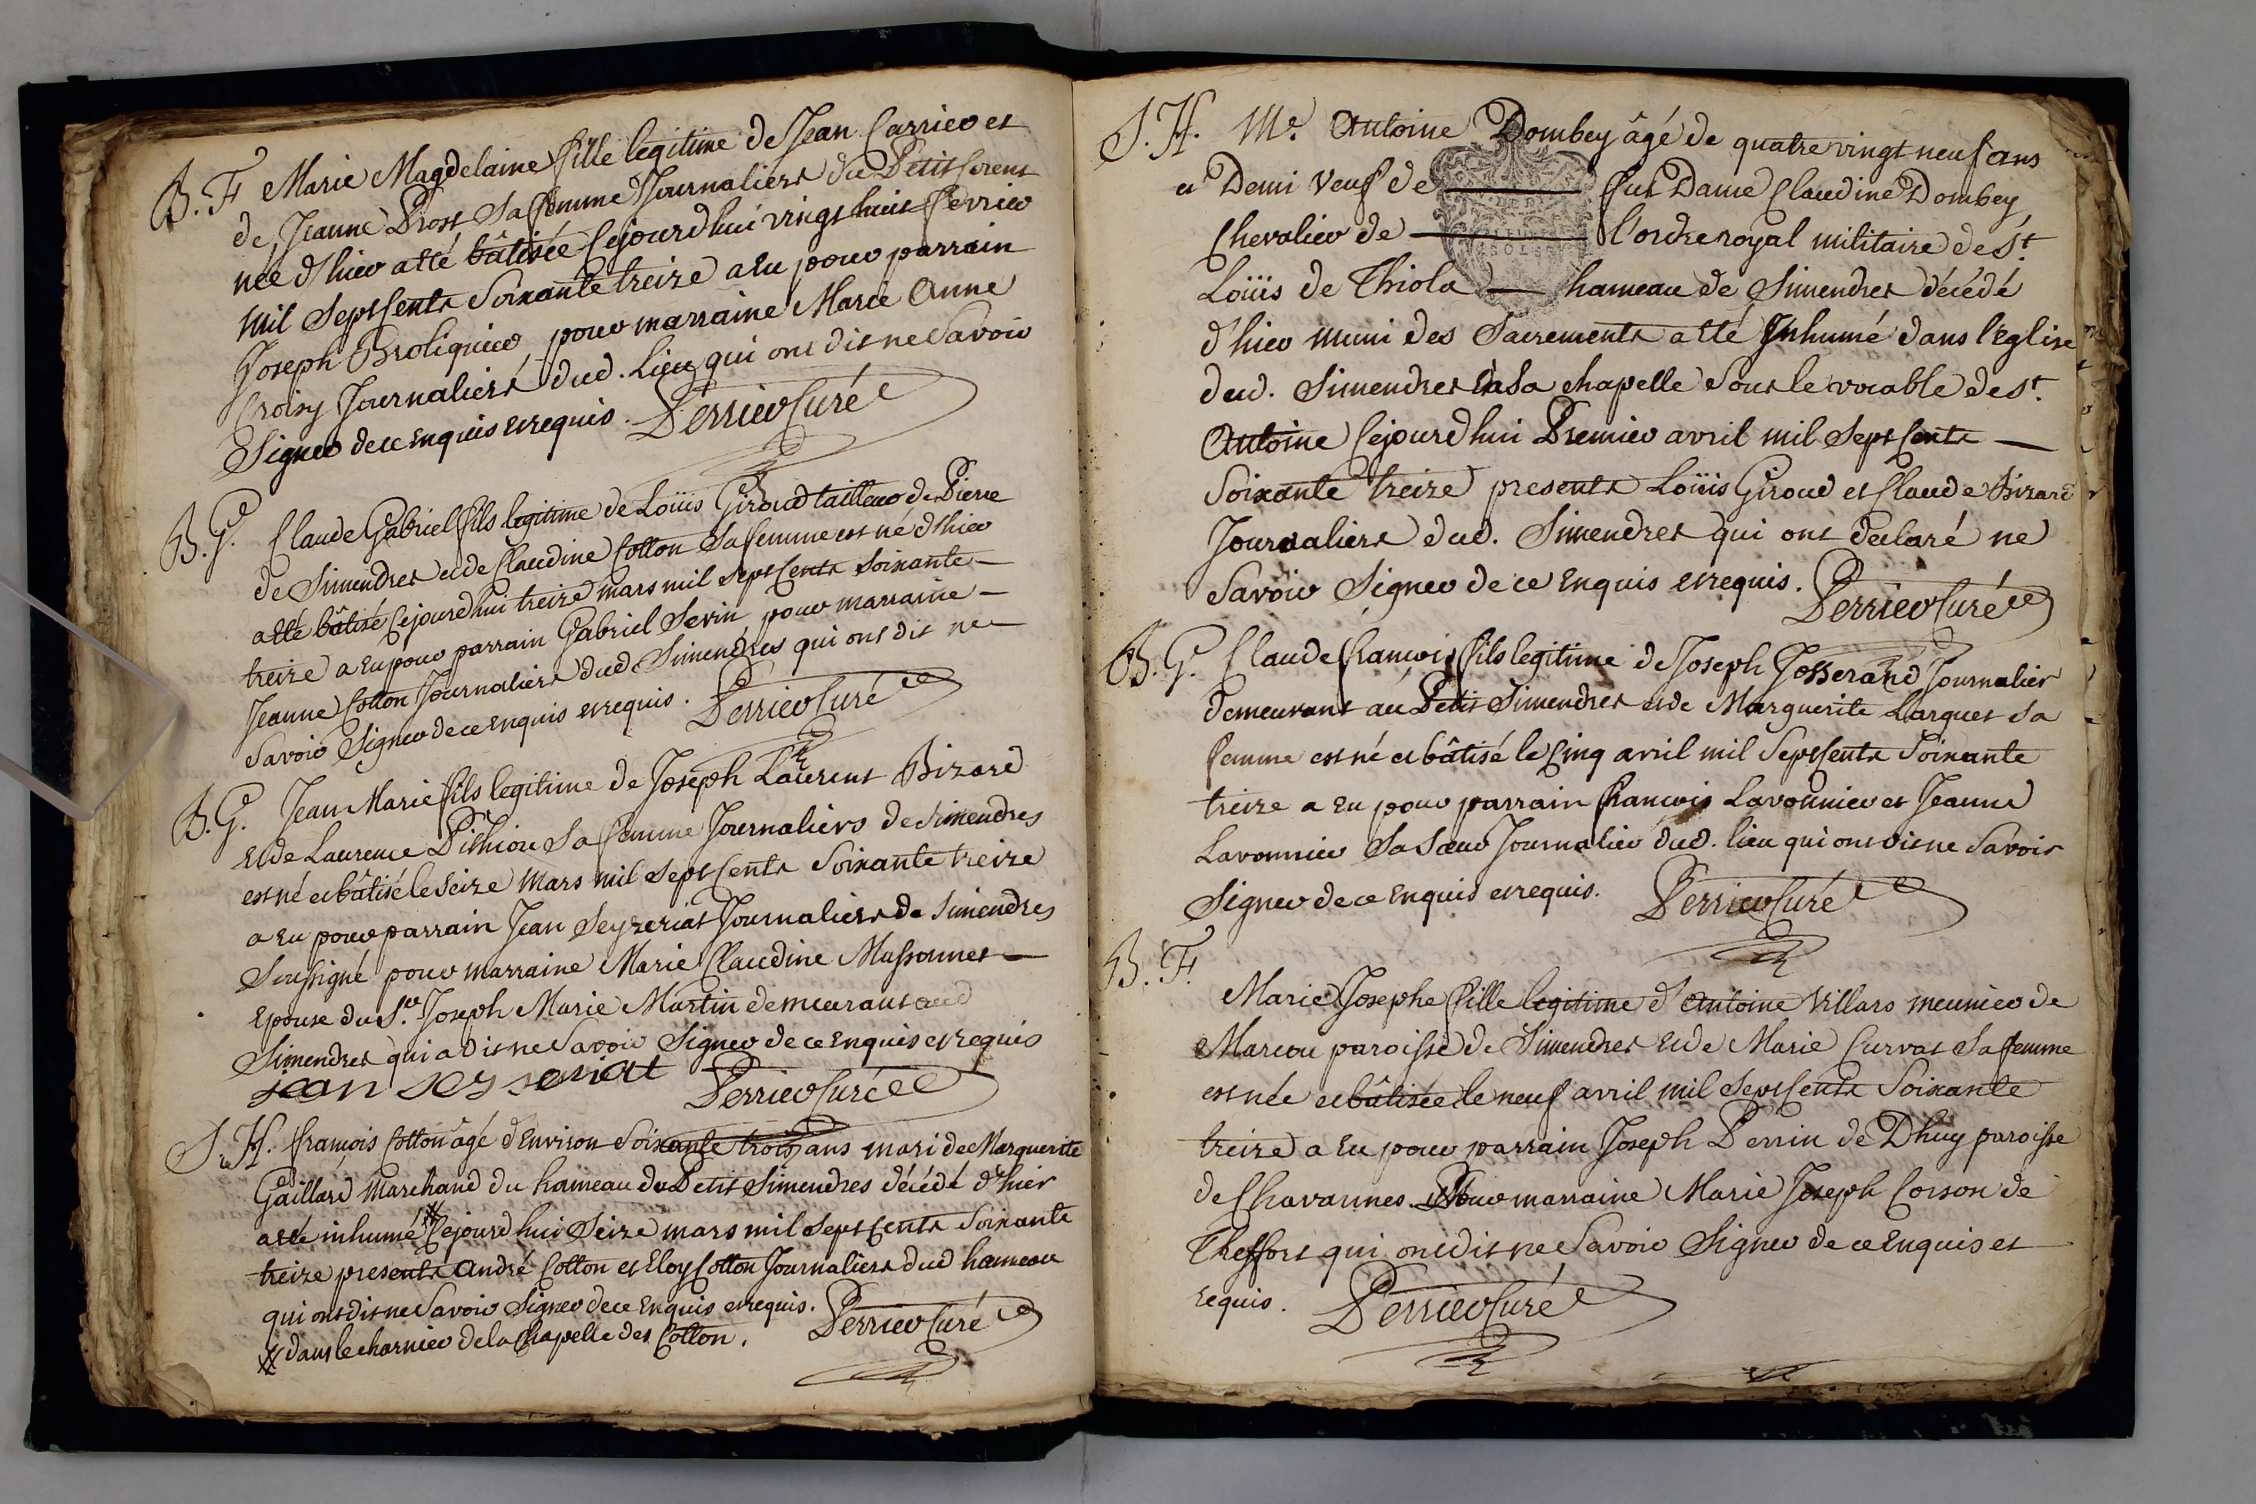 B. F. Marie Magdelaine fille legitime de Jean Carrier et
de Jeanne Prost Sa femme Journaliers du Petit Corent
née d'hier atté bâtisée Cejourdhui vingt huit fevrier
Mil Sept Cents Soixante treize a Eu pour parrain
Joseph Broliquier pour marraine Marie Anne
Croisy Journaliers dud. Lieu qui ont dit ne Savoir
Signer de ce Enquis et requis. Perrier Curé
B. G. Claude Gabriel fils legitime de Loüis Giroud tailleur de Pierre
de Simendres et de Claudine Cotton Sa femme est né d'hier
atté bâtisé Cejourdhui treize mars mil sept Cents Soixante
treize a Eu pour parrain Gabriel Sevin pour marraine
Jeanne Cotton Journaliers dud. Simendres qui ont dit ne
Savoir Signer de ce Enquis et requis. Perrier Curé
B. G. Jean Marie fils legitime de Joseph Laurent Bizard
et de Laurence Pithiou Sa femme Journaliers de Simendres
est né et bâtisé le Seize Mars mil Sept Cents Soixante treize
a Eu pour parrain Jean Seyzeriat Journaliers de Simendres
Soussigné pour marraine Marie Claudine Mussonnet
Epouse du Sr. Joseph Marie Martin demeurant aud
Simendres qui a dit ne Savoir Signer de ce Enquis et requis
jean seyseriat Perrier Curé
S. H. francois Cotton âgé d'Environ Soixante trois ans mari de Marguerite
Gaillard Marchand du hameau du Petit Simendres décédé d'hier
atté inhumé # Cejourd'hui Seize mars mil Sept Cents Soixante
treize presents André Cotton et Eloy Cotton Journaliers dud hameau
qui ont dit ne Savoir Signer de ce Enquis et requis. Perrier Curé
# dans le charnier de la Chapelle des Cotton.
S. H. Me. Antoine Dombey âgé de quatre vingt neuf ans
et Demi Veuf de fut Dame Claudine Dombey
Chevalier de l'ordre royal militaire de St.
Loüis de Thiola hameau de Simendres décédé
d'hier muni des Sacrements atté Inhumé dans l'Eglise
dud. Simendres Et a Sa chapelle Sous le vocable de St.
Antoine Cejourd'hui Premier avril mil Sept Cents
Soixante treize presents Loüis Giroud et Claude Bizard
Journaliers dud. Simendres qui ont declaré ne
Savoir Signer de ce Enquis et requis. Perrier Curé
B. G. Claude francois fils legitime de Joseph Josserand Journalier
demeurant au Petit Simendres et de Marguerite Larquet Sa
femme est né et bâtisé le Cinq avril mil Sept Cents Soixante
treize a Eu pour parrain francois Lavonnier et Jeanne
Lavonnier Sa Sœur Journalier dud. lieu qui ont dit ne Savoir
Signer de ce Enquis et requis. Perrier Curé
B. F.
Marie Josephe fille legitime d'Antoine Villars meunier de
Marcou paroisse de Simendres et de Marie Curvat Sa femme
est née et bâtisée le neuf avril mil Sept Cents Soixante
treize a Eu pour parrain Joseph Perrin de Dhuy paroisse
de Chavannes. Pour marraine Marie Joseph Corson de
Theffort qui ont dit ne Savoir Signer de ce Enquis et
requis. Perrier Curé